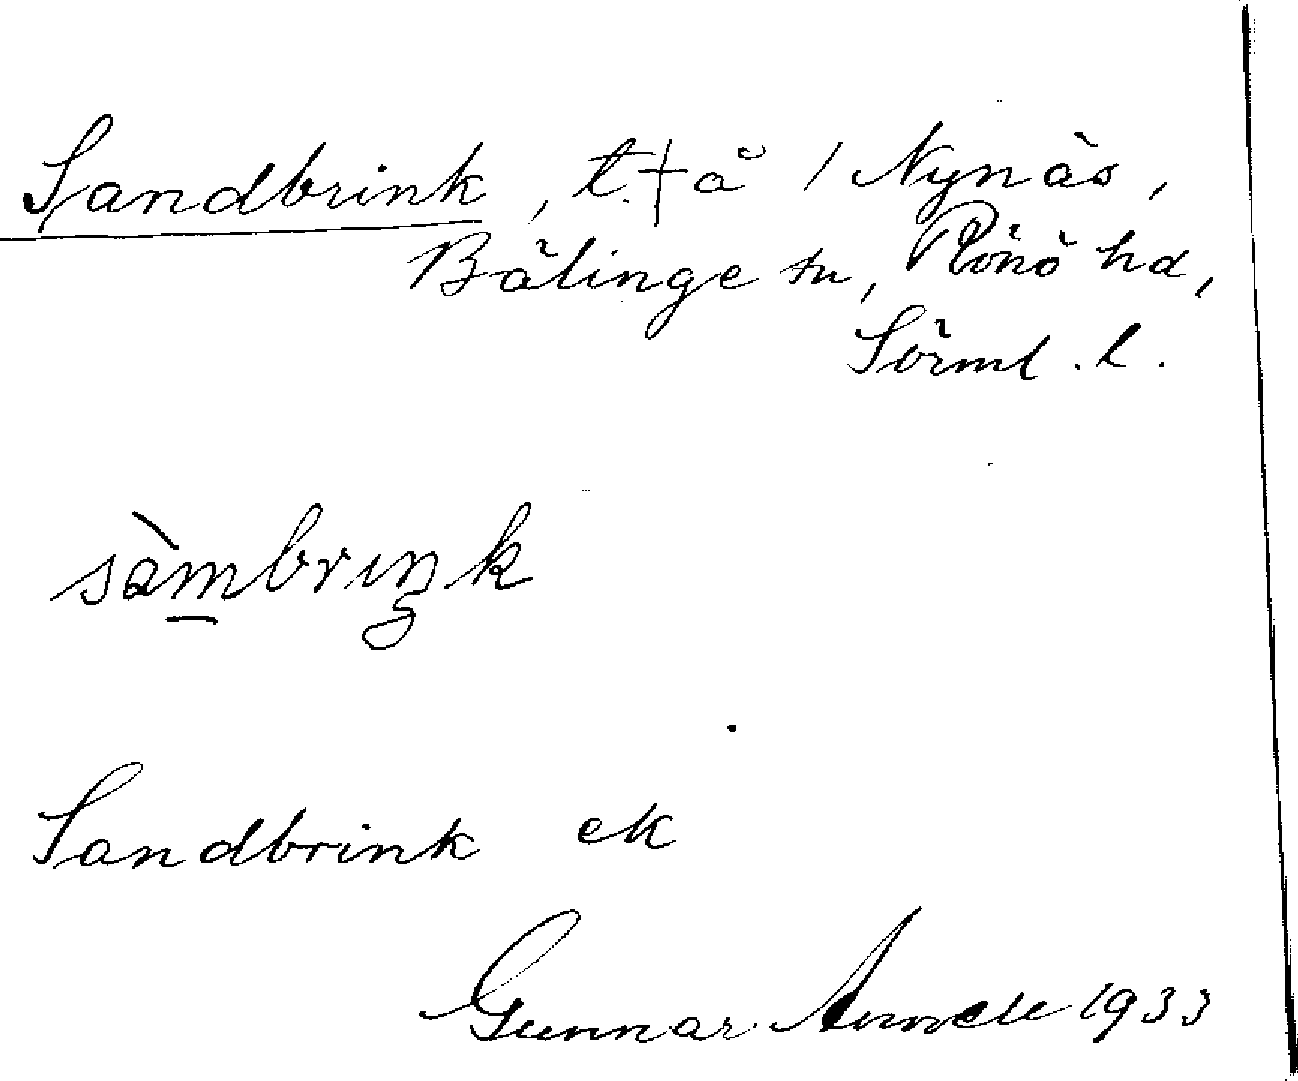 Sandbrink, t.†å / Nynäs,
Bälinge sn, Rönö hd,
Sörml. l.
sàmbrıŋk
Sandbrink ek
Gunnar 1933